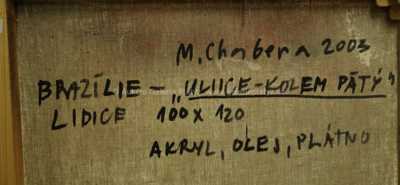 M. Chabera 2003
BRAZÍLIE – „ULIICE-KOLEM PÁTÝ"
LIDICE 100X120
AKRYL, OLEJ, PLÁTNO